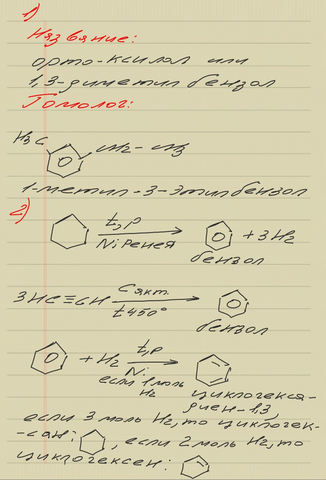 1)
Название:
орто-ксилол или
1,3-диметил бензол
Гомолог:
H3C
CH2-CH3
1-метил-3-этилбензол
2)
t, p
Ni Ренея
+3H2
бензол
3HC≡CH
Cакт.
t450°
бензол
+H2
t,p
Ni
если 1 моль
H2
циклогекса-
диен-1,3,
если 3 моль H2, то циклогек-
-сан:
, если 2 моль H2, то
циклогексен: